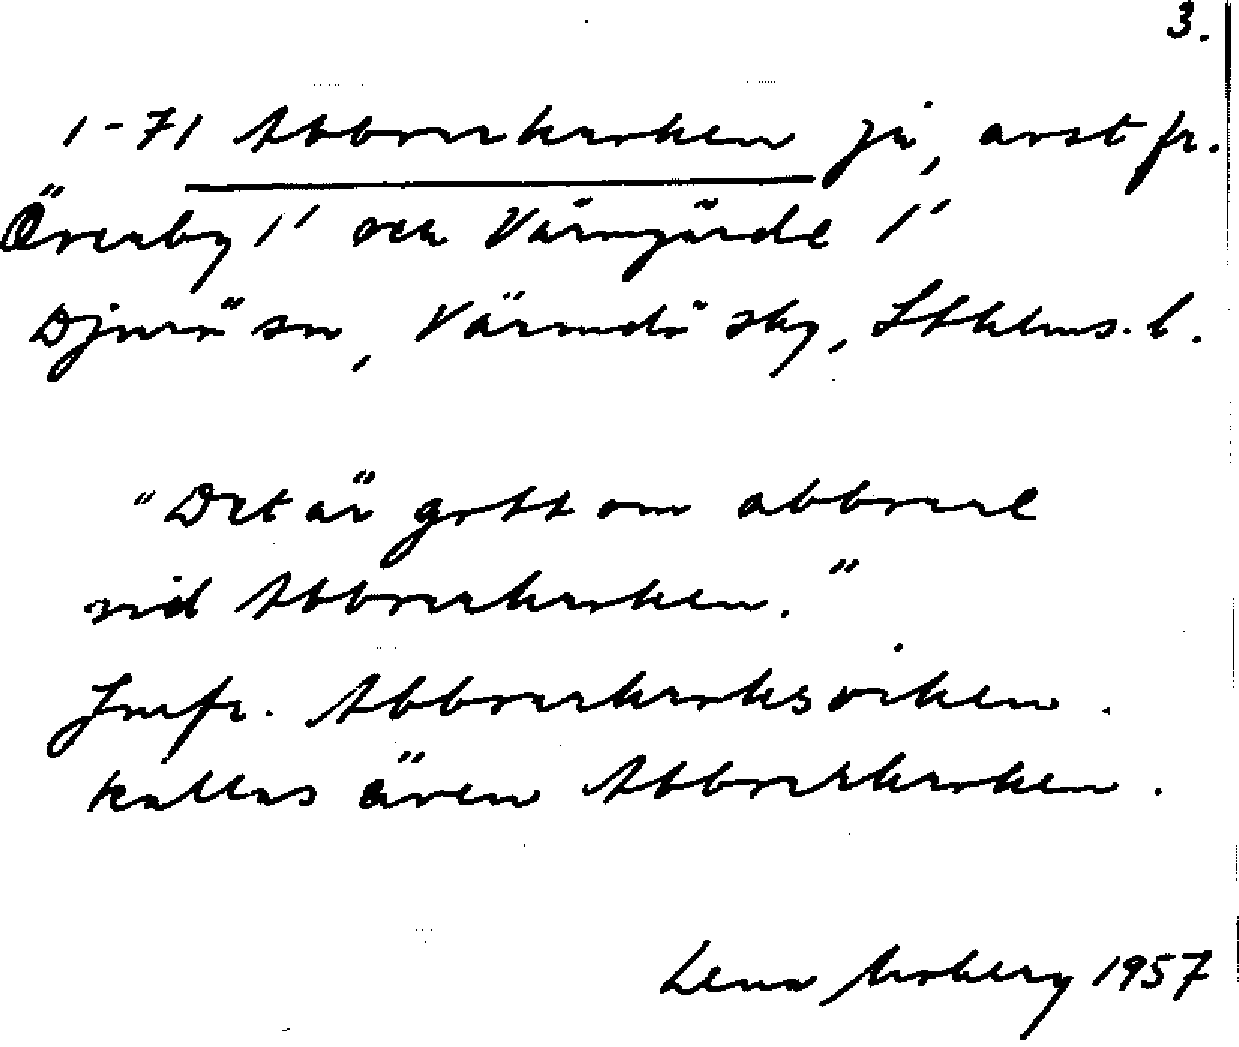 3.
1-71 Abborrkroken på, avst fr.
Överby 1' och Värmgärde 1'
Djurö sn, Värmdö skg, Sthlms. l.
"Det är gott om abborre
vid Abborrkroken."
Jmfr. Abborrkroksviken.
Kallas även Abborrkroken.
Lena Moberg 1957